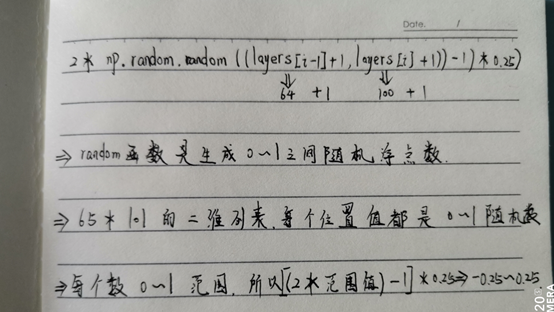 Date. /
2* np.random.random((layers[i-1]+1, layers[i]+1))-1)*0.25)
⇓ ⇓
64 +1 100 +1
⇒ random函数是生成0~1之间随机浮点数.
⇒ 65*101的二维列表,每个位置值都是0~1随机数
⇒每个数0~1范围,所以[(2*范围值)-1]*0.25⇒-0.25~0.25.